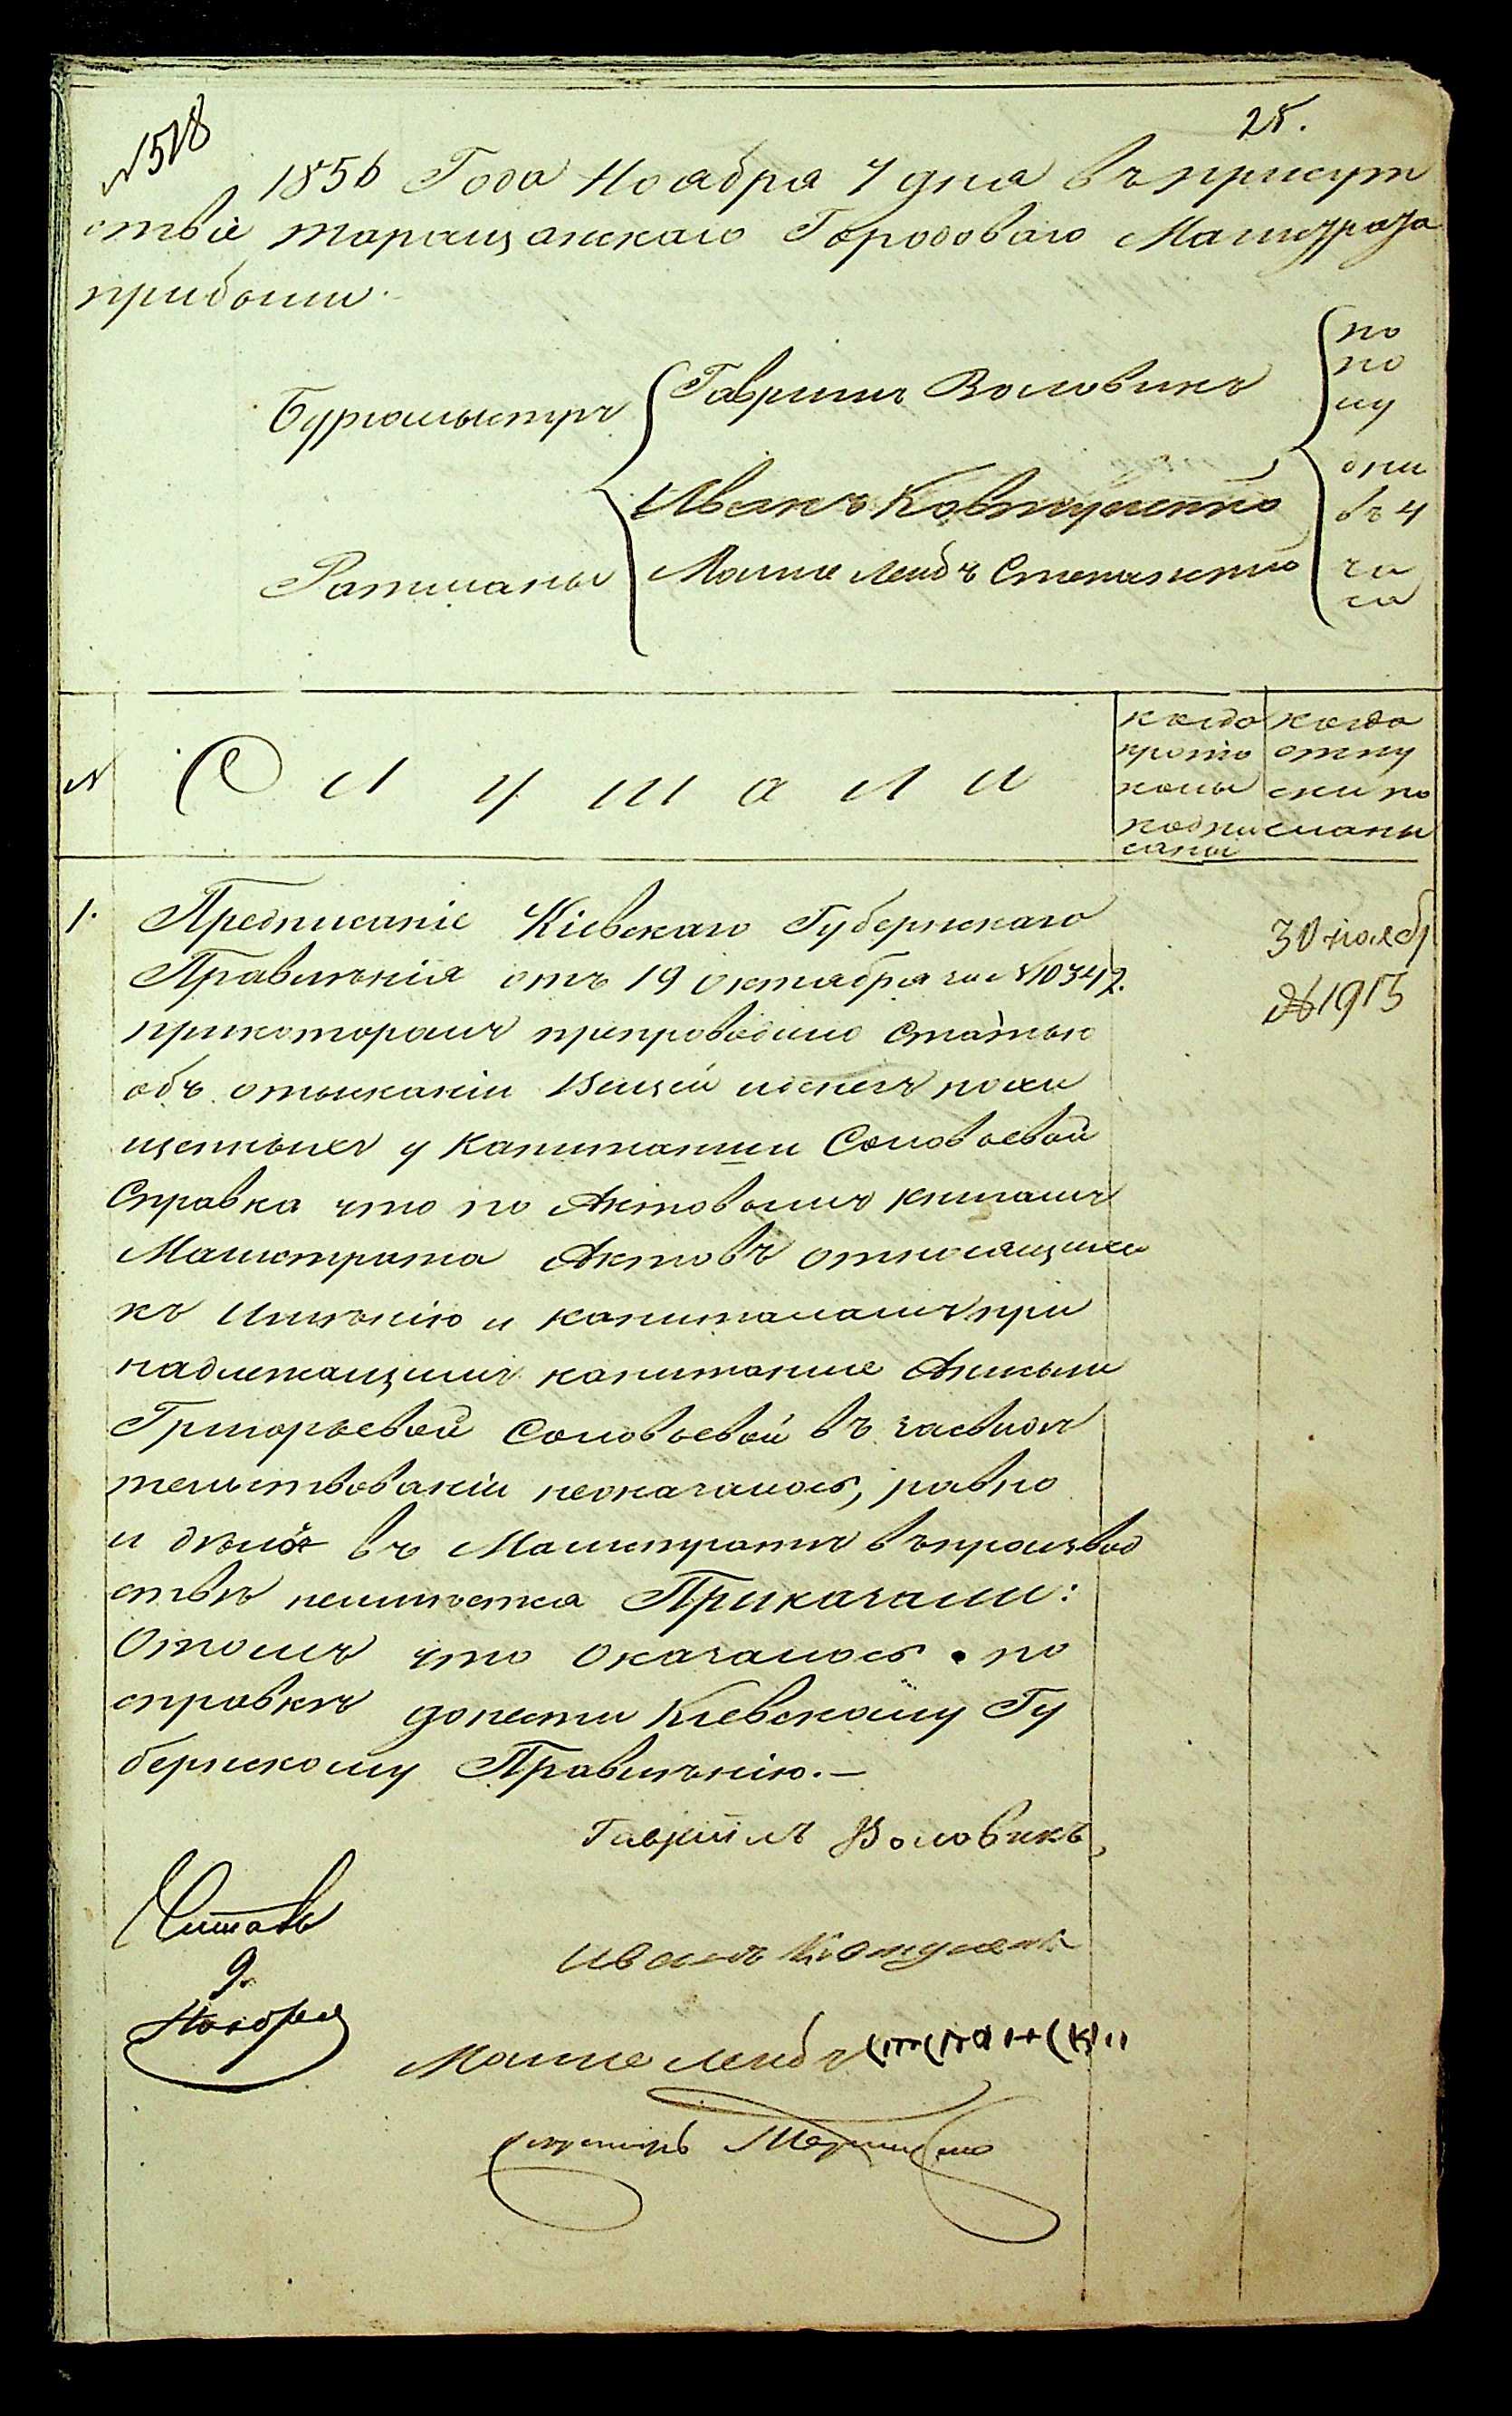 № 1518
25.
1856 Года Ноября 7 дня въ присут
ствіе таращанскаго Городоваго Магистрата
прибыли
Бургомыстръ
Гаврилъ Воловикъ
по
по
лу
дни
въ 4
ча
са
Иванъ Ковтуненко
Ратманы
Мошко Лейбъ Степанский
№
Слушали
когда
прото
колы
подпи
саны
когда
отпу
ски по
сланы
1.
Предписаніе Кіевскаго Губернскаго
Правленія отъ 19 Октября за № 10342.
прикоторомъ препроводило статью
объ отысканіи Вещей иденегъ похи
щенныхъ у Капитанши Соловьевой
Справка что по Актовымъ книгамъ
Магистрата Актовъ относящихся
къ Имѣнію и капиталамъ при
надлежащимъ капитанше Анныи
Григорьевой Соловьевой въ засвидѣ
тельствованіи неоказалось, равно
и дѣлъ въ Магистратѣ въ производ
ствѣ неимѣется Приказали:
Отомъ что оказалось по
справкѣ донести Кіевскому Гу
бернскому Правленію.—
30 ноябр
№ 1915
Гавриилъ Воловикъ
Читалъ
9.
Ноября
Иванъ
Мошко Лейбъ Степанский
Секретарь